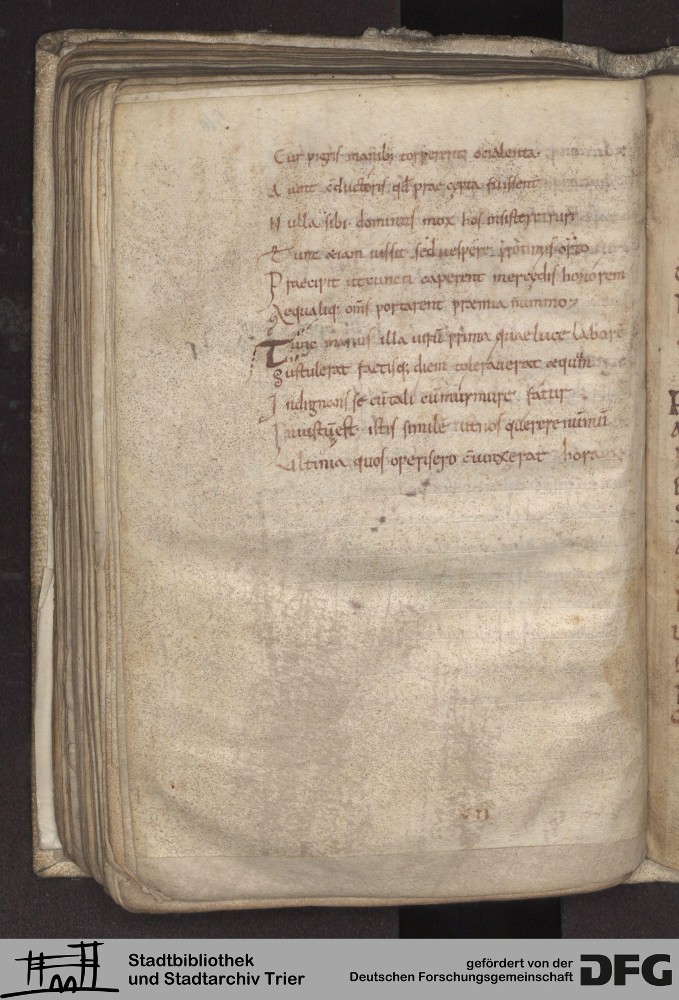 Cur pigris manib; torperent ocia lenta.
A iunt cductoris qđ praecepta fuissent
N ulla sibi dominus mox hos insistere ruri
T unc etiam iussit sed vespere protinus orto
P raecipit ut cuncti caperent mercedis honorem
Aequaliq; oms portarent praemia nummo;
Tunc manus illa uirū prima quae luce laborē
Sustulerat factisq; diem tolerauerat aequū
I ndignans se cū tali cū murmure fatur
Iniustū est istis similē nos querere nūmū
ultima quos operis ero ciunxerat hora
VII
Stadtbibliothek
und Stadtarchiv Trier
gefördert von der
Deutschen Forschungsgemeinschaft
DFG